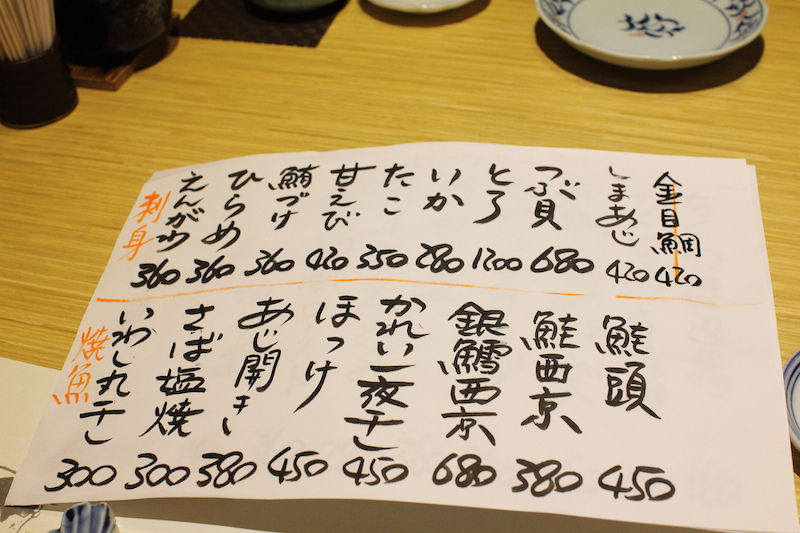 刺身
えんがわ 360
ひらめ 360
鮪づけ 360
甘えび 420
たこ 350
いか 280
とろ 1200
つぶ貝 680
しまあじ 420
金目鯛 420
焼魚
いわし丸干し 300
さば塩焼 300
あじ開き 380
ほっけ 450
かれい一夜干し 450
銀鱈西京 680
鮭西京 380
鮭頭 450